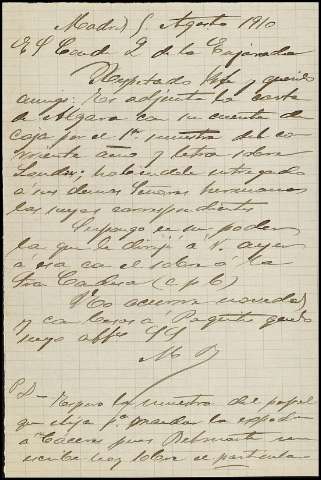 Madrid 5 Agosto 1910
El Conde de la
Respetado Sr y querido
amigo: Es adjunta la carta
de Algara con su cuenta de
caja por el 1er semestre del co-
rriente año y letra sobre
Londres; habiendole entregado
á sus demas Señores hermanos
las suyas correspondientes
Supongo en su poder
la que le dirijí á V. ayer
á esa con el sobre á la
Sra Condesa (c p b)
No ocurre novedad
y con besos á Paquito queda
suyo affmo SS
M
PD - Espero la muestra del papel
que elija pa mandar la
á Cáceres pues Belmonte me
escribe hoy sobre el particular